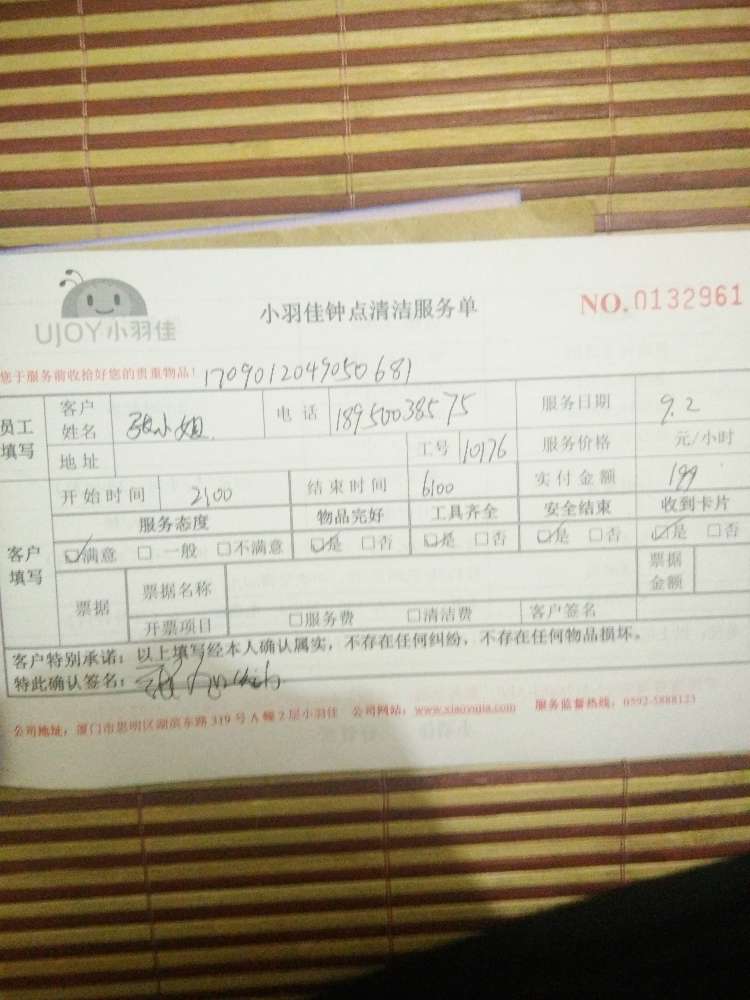 UJOY小羽佳
小羽佳钟点清洁服务单
NO.0132961
您于服务前收拾好您的贵重物品! 1709012049050681
员工填写 客户姓名 张小姐 电话 18950038575 服务日期 9.2
地址 工号 10176 服务价格 元/小时
开始时间 2:00 结束时间 6:00 实付金额 199
客户填写 服务态度 物品完好 工具齐全 安全结束 收到卡片
☑满意 □一般 □不满意 ☑是 □否 ☑是 □否 ☑是 □否 ☑是 □否
票据 票据名称 票据金额
开票项目 □服务费 □清洁费 客户签名
客户特别承诺:以上填写经本人确认属实,不存在任何纠纷,不存在任何物品损坏。
特此确认签名:
公司地址:厦门市思明区湖滨东路319号A幢2层小羽佳 公司网站:www.xiaoyujia.com 服务监督热线:0592-5888123